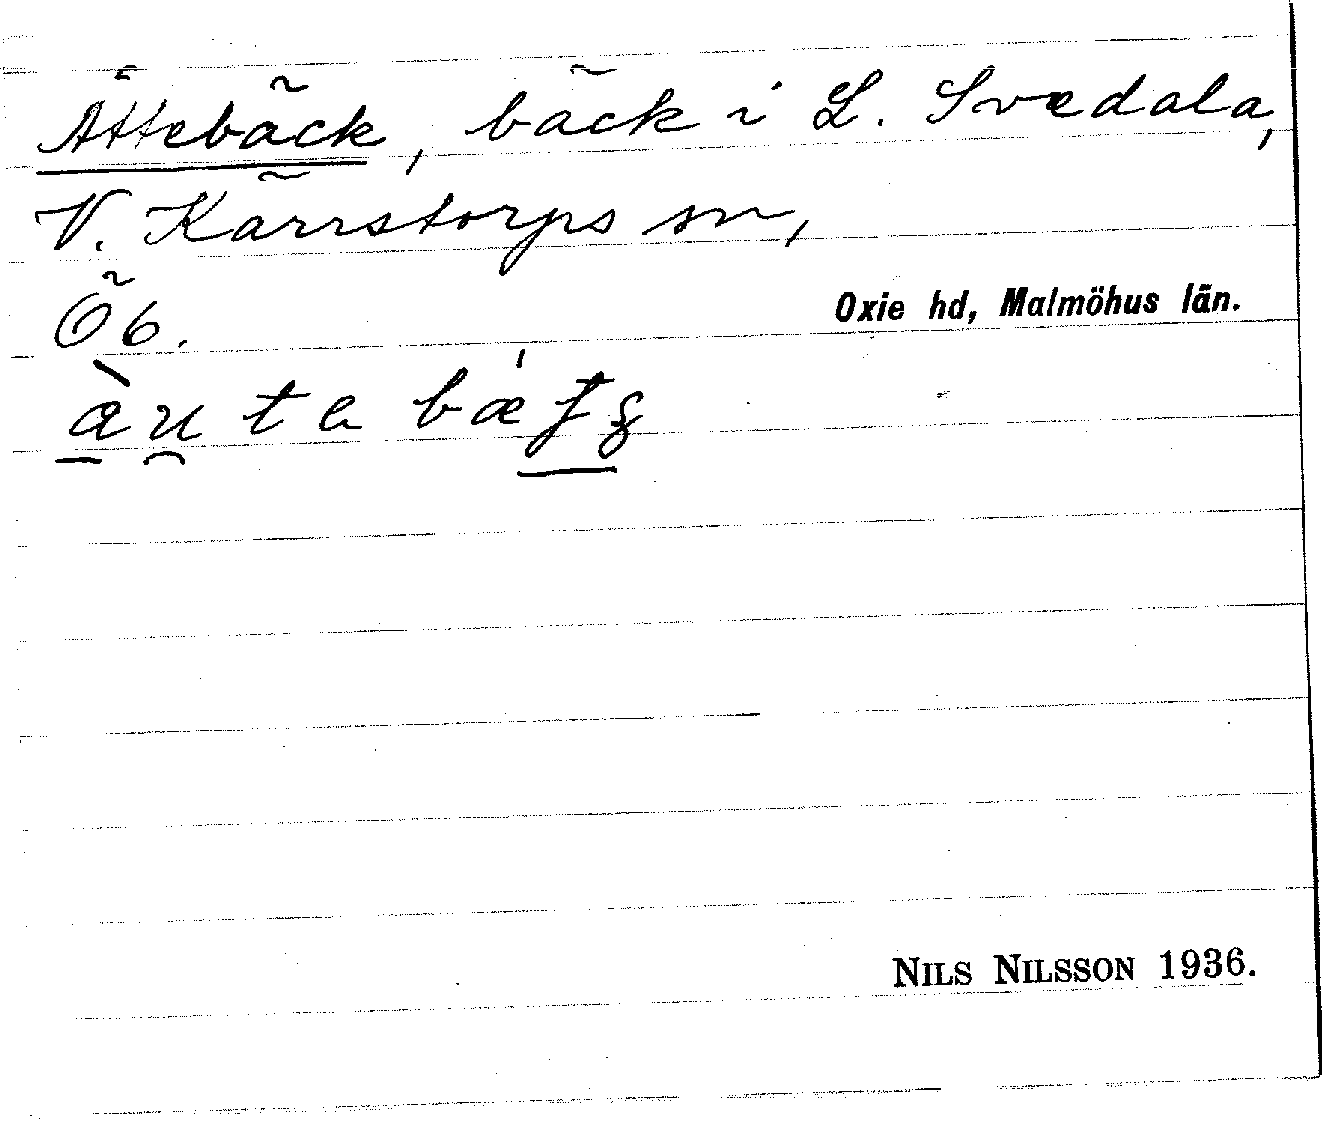 Åttebäck, bäck i L. Svedala,
V. Kärrstorps sn,
Öb.
Oxie hd, Malmöhus län.
NILS NILSSON 1936.